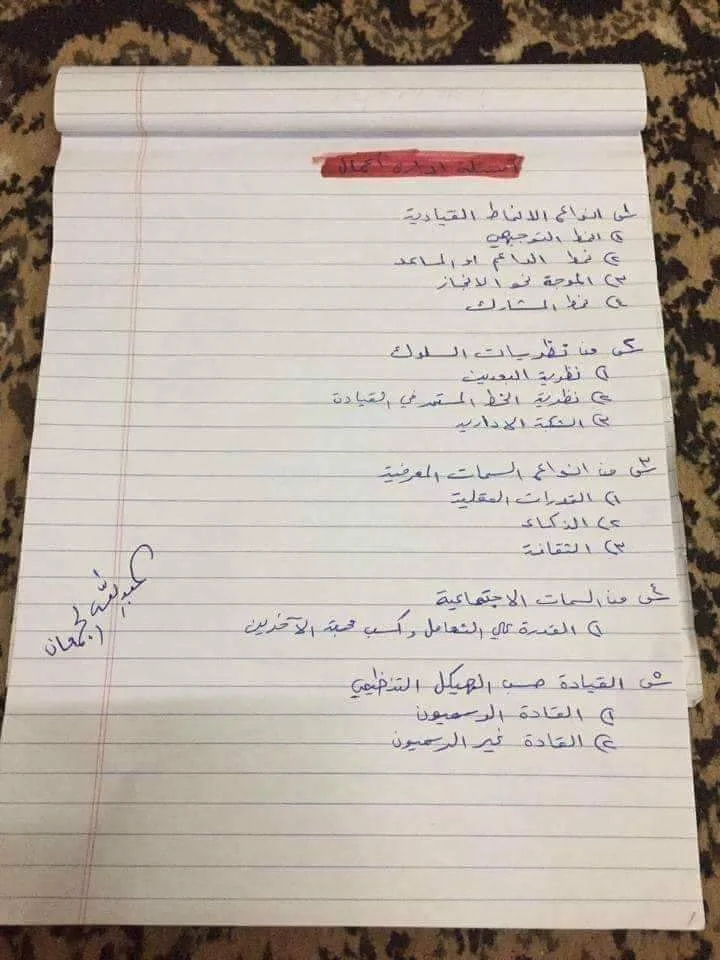 أسئلة ادارة أعمال
س١ انواع الانماط القيادية
١) النمط التوجيهي
٢) نمط الداعم او المساعد
٣) الموجة نحو الانجاز
٤) نمط المشارك
س٢ من نظريات السلوك
١) نظرية البعدين
٢) نظرية الخط المستمر في القيادة
٣) الشبكة الادارية
س٣ من انواع السمات المعرفية
١) القدرات العقلية
٢) الذكاء
٣) الثقافة
س٤ من السمات الاجتماعية
١) القدرة على التعامل وكسب محبة الآخرين
س٥ القيادة حسب الهيكل التنظيمي
١) القادة الرسميون
٢) القادة غير الرسميون
عبدالله